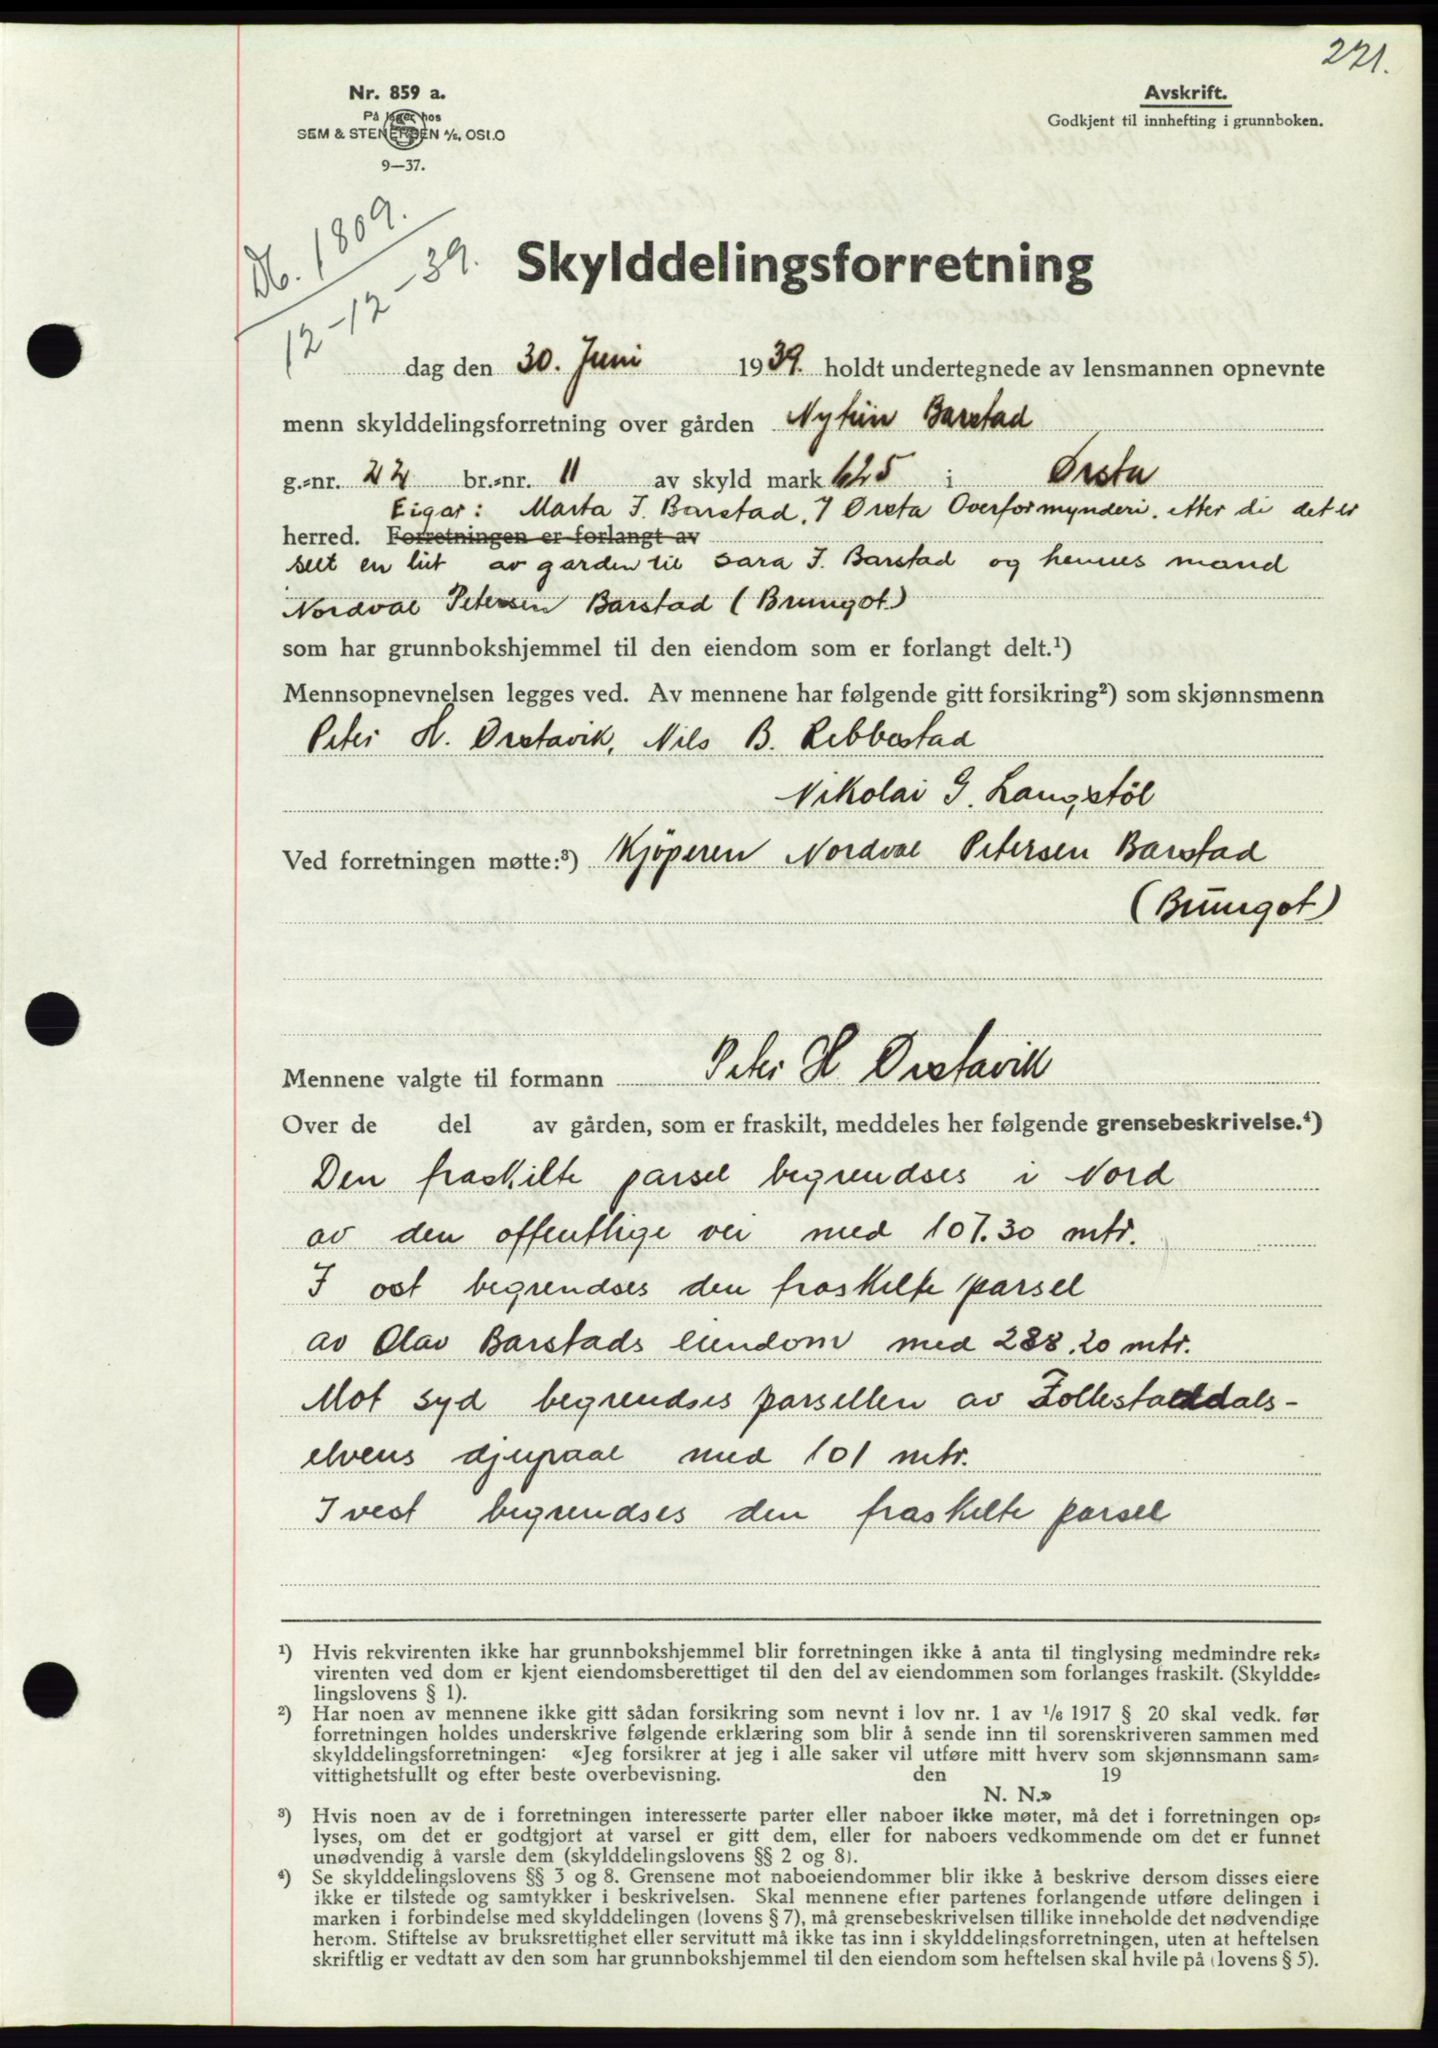 221.
Nr. 859 a.
På lager hos
SEM & STENERSEN A/S, OSLO
9—37.
Avskrift.
Godkjent til innhefting i grunnboken.
Db. 1809.
12-12-39.
Skylddelingsforretning
dag den 30. Juni 1939. holdt undertegnede av lensmannen opnevnte
menn skylddelingsforretning over gården Nytün Barstad
g.-nr. 22 br.-nr. 11 av skyld mark 625 i Ørsta
Eigar: Marta I. Barstad, 7 Ørsta Overformynderi. etter di det er
herred. Forretningen er forlangt av
selt en lut av garden til Sara I. Barstad og hennes mand
Nordval Petersen Barstad (Brungot)
som har grunnbokshjemmel til den eiendom som er forlangt delt.¹)
Mennsopnevnelsen legges ved. Av mennene har følgende gitt forsikring²) som skjønnsmenn
Peter H. Ørstavik, Nils B. Rebbestad
Nikolai G. Langstöl
Ved forretningen møtte:³) Kjöperen Nordval Petersen Barstad
(Brungot)
Mennene valgte til formann Peter H Ørstavik
Over de del av gården, som er fraskilt, meddeles her følgende grensebeskrivelse.⁴)
Den fraskilte parsel begrendses i Nord
av den offentlige vei med 107.30 mtr.
I ost begrendses den fraskilte parsel
av Olav Barstads eiendom med 288.20 mtr.
Mot syd begrendses parsellen av Follestaddals-
elvens djupaal med 101 mtr.
I vest begrendses den fraskilte parsel
¹) Hvis rekvirenten ikke har grunnbokshjemmel blir forretningen ikke å anta til tinglysing medmindre rek-
virenten ved dom er kjent eiendomsberettiget til den del av eiendommen som forlanges fraskilt. (Skyldde-
lingslovens § 1).
²) Har noen av mennene ikke gitt sådan forsikring som nevnt i lov nr. 1 av 1/6 1917 § 20 skal vedk. før
forretningen holdes underskrive følgende erklæring som blir å sende inn til sorenskriveren sammen med
skylddelingsforretningen: «Jeg forsikrer at jeg i alle saker vil utføre mitt hverv som skjønnsmann sam-
vittighetsfullt og efter beste overbevisning. den 19
N. N.»
³) Hvis noen av de i forretningen interesserte parter eller naboer ikke møter, må det i forretningen op-
lyses, om det er godtgjort at varsel er gitt dem, eller for naboers vedkommende om det er funnet
unødvendig å varsle dem (skylddelingslovens §§ 2 og 8).
⁴) Se skylddelingslovens §§ 3 og 8. Grensene mot naboeiendommer blir ikke å beskrive dersom disses eiere
ikke er tilstede og samtykker i beskrivelsen. Skal mennene efter partenes forlangende utføre delingen i
marken i forbindelse med skylddelingen (lovens § 7), må grensebeskrivelsen tillike inneholde det nødvendige
herom. Stiftelse av bruksrettighet eller servitutt må ikke tas inn i skylddelingsforretningen, uten at heftelsen
skriftlig er vedtatt av den som har grunnbokshjemmel til den eiendom som heftelsen skal hvile på (lovens § 5).